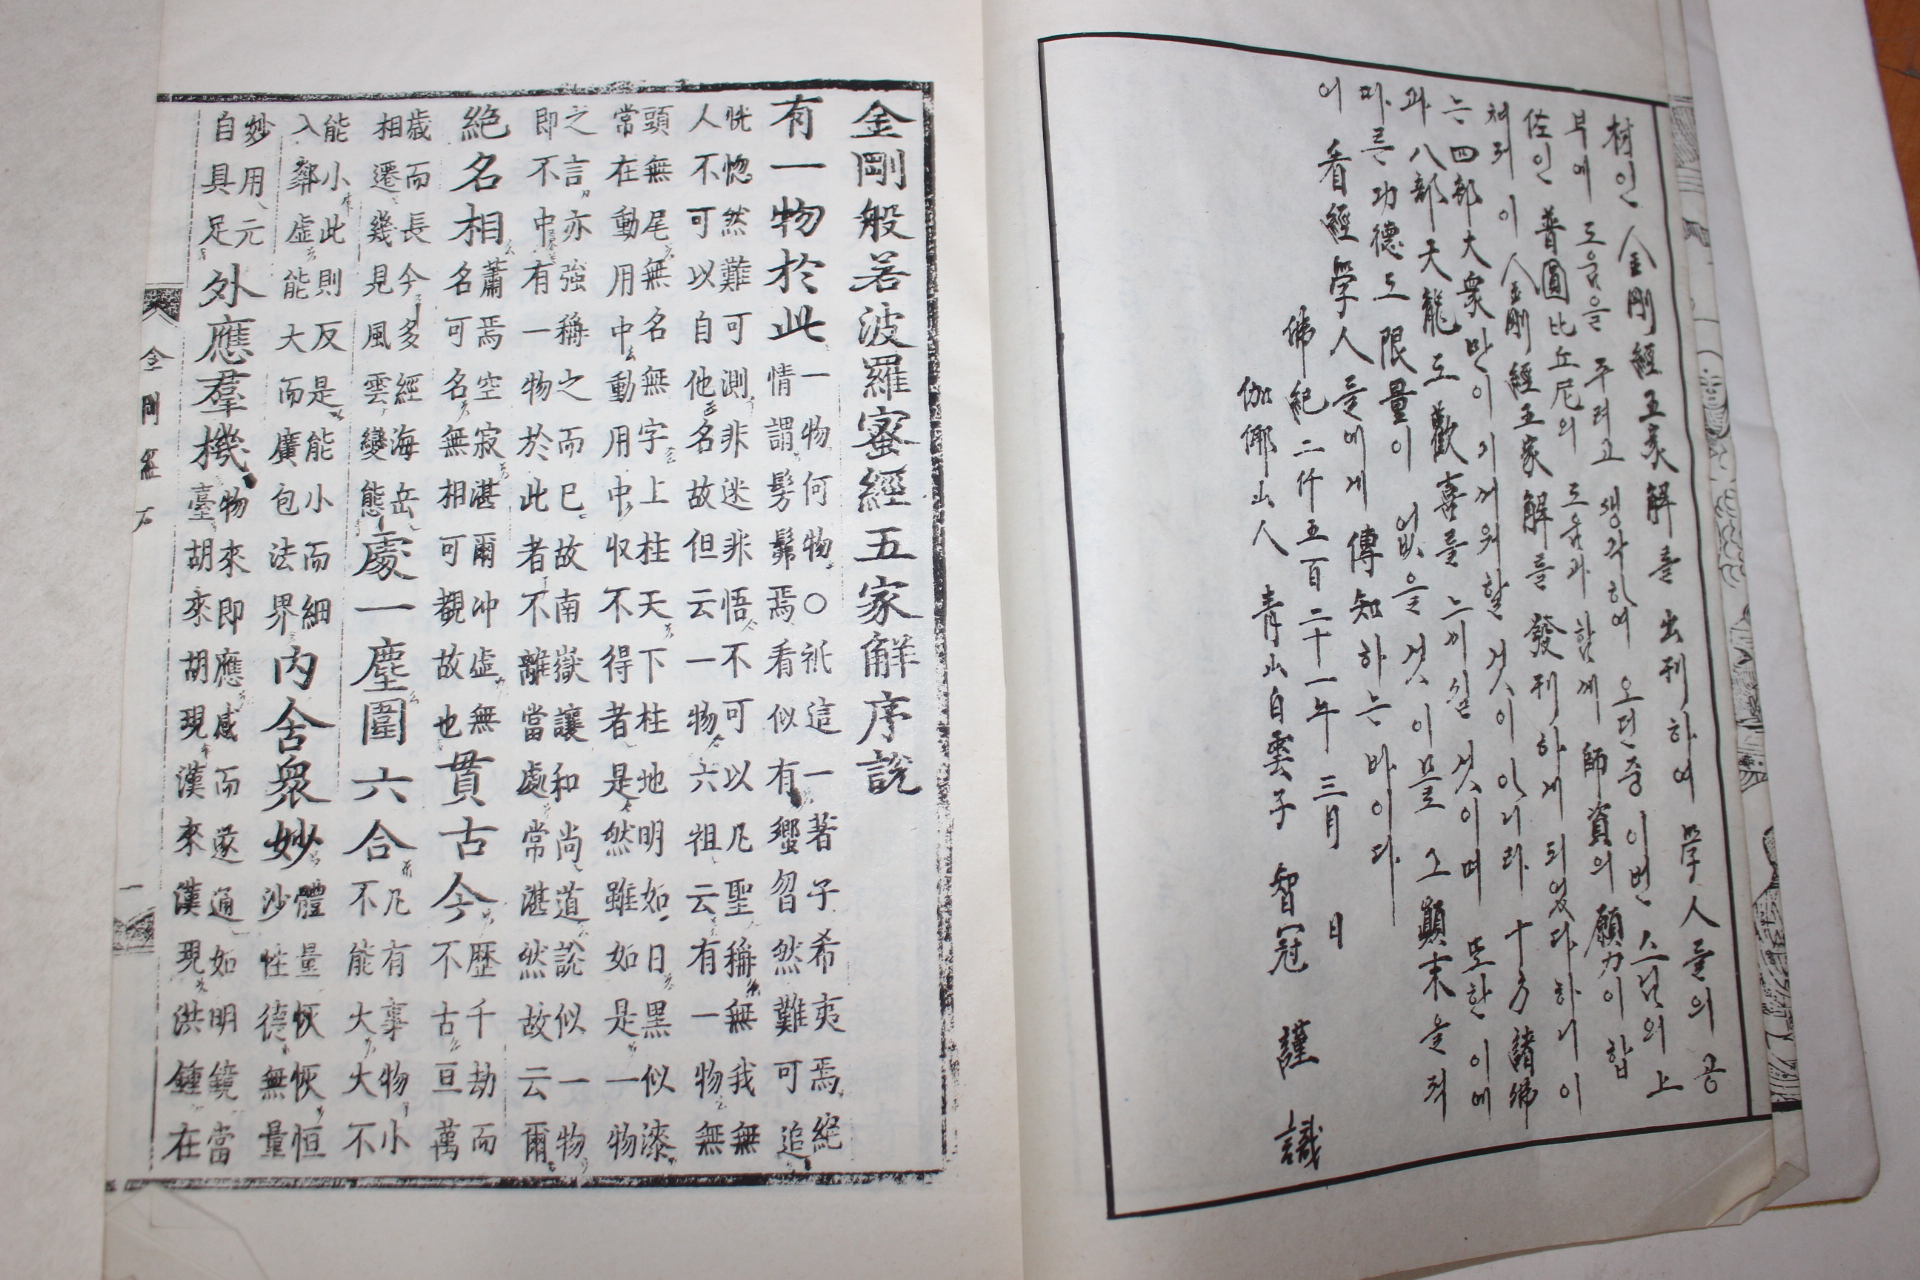 村인 金剛經五家解를 出刊하여 學人들의 공
부에 도움을 주려고 생각하여 오던중 이번 스님의 上
佐인 普圓比丘尼의 도움과 함께 師資의 願力이 합
쳐저 이 金剛經五家解를 發刊하게 되었다하니 이
는 四部大衆만이 기꺼워할 것이 안니라 十方諸佛
과 八部天龍도 歡喜를 느끼실 것이며 또한 이에
따른 功德도 限量이 없을 것이므로 그 顚末을 적
어 看經學人들에게 傳知하는 바이다
佛紀二仟五百二十一年 三月 日
伽倻山人 靑山白雲子 智冠 謹識
金剛般若波羅蜜經五家解序說
有一物於此 一物何物○祇這一著子希夷焉絶情謂髣髴焉看似有蠁曶然難可追
恍惚然難可測非迷非悟不可以凡聖稱無我無
人不可以自他名故但云一物六祖云有一物無
頭無尾無名無字上柱天下柱地明如日黑似漆
常在動用中動用中收不得者是然雖如是一物
之言亦強稱之而已故南嶽讓和尚道說似一物
即不中有一物於此者不離當處常湛然故云爾
絶名相 蕭焉空寂湛爾冲虛無名可名無相可覩故也 貫古今 歷千劫而不古亘萬
歲而長今多經海岳相遷幾見風雲變態 處一塵圍六合 凡有事物小不能大大不
能小此則反是能小而細入鄰虛能大而廣包法界 內含衆妙 體量恢恢恒沙性德無量
妙用元自具足 外應羣機 物來即應感而遂通如明鏡當臺胡來胡現漢來漢現洪鍾在
金剛經
一